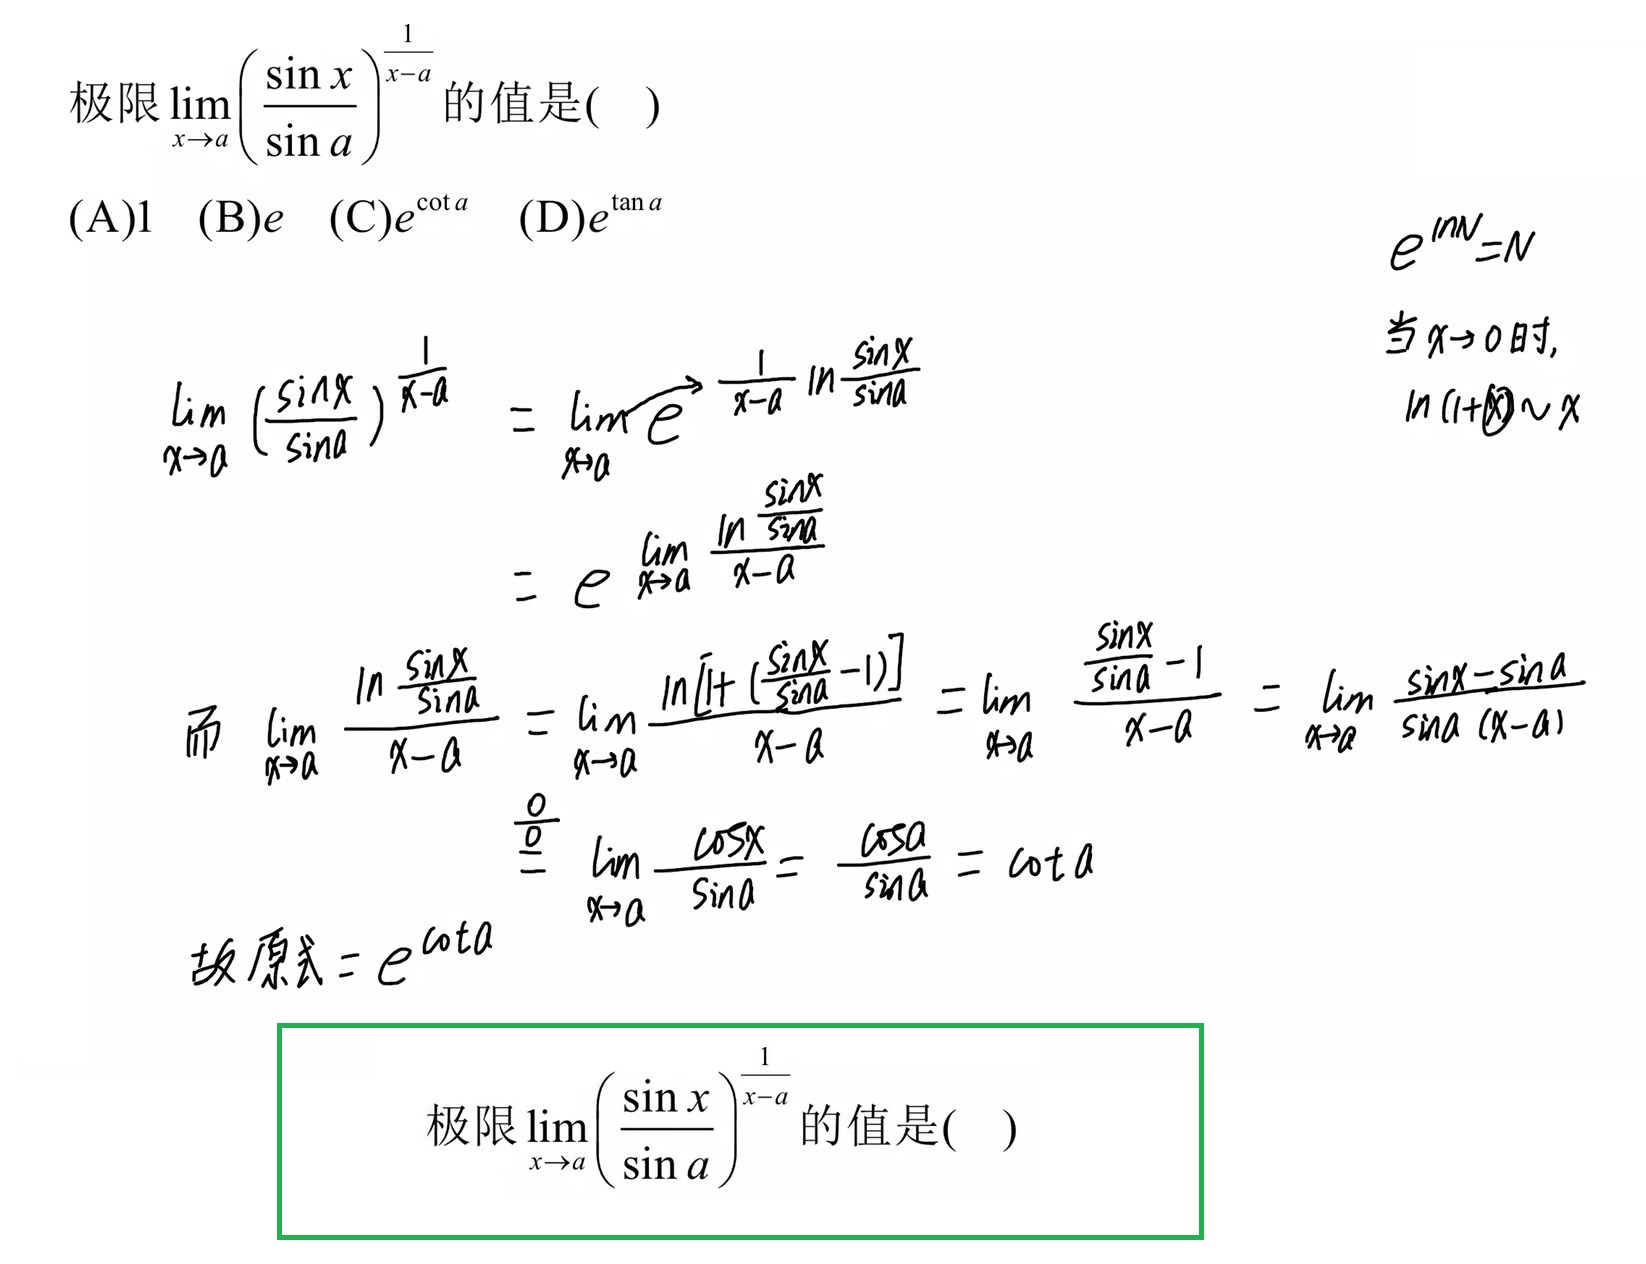 极限 lim_{x→a} (sin x / sin a)^{1/(x−a)} 的值是( )
(A)1 (B)e (C)e^{cot a} (D)e^{tan a}
e^{lnN}=N
当 x→0时,
ln(1+x)~x
lim_{x→a} (sinx/sina)^{1/(x-a)} = lim_{x→a} e^{1/(x-a) ln sinx/sina}
= e^{lim_{x→a} (ln sinx/sina)/(x-a)}
而 lim_{x→a} (ln sinx/sina)/(x-a) = lim_{x→a} ln[1+(sinx/sina -1)]/(x-a) = lim_{x→a} (sinx/sina -1)/(x-a) = lim_{x→a} (sinx-sina)/(sina (x-a))
0/0 = lim_{x→a} cosx/sina = cosa/sina = cot a
故原式=e^{cota}
极限 lim_{x→a} (sin x / sin a)^{1/(x−a)} 的值是( )